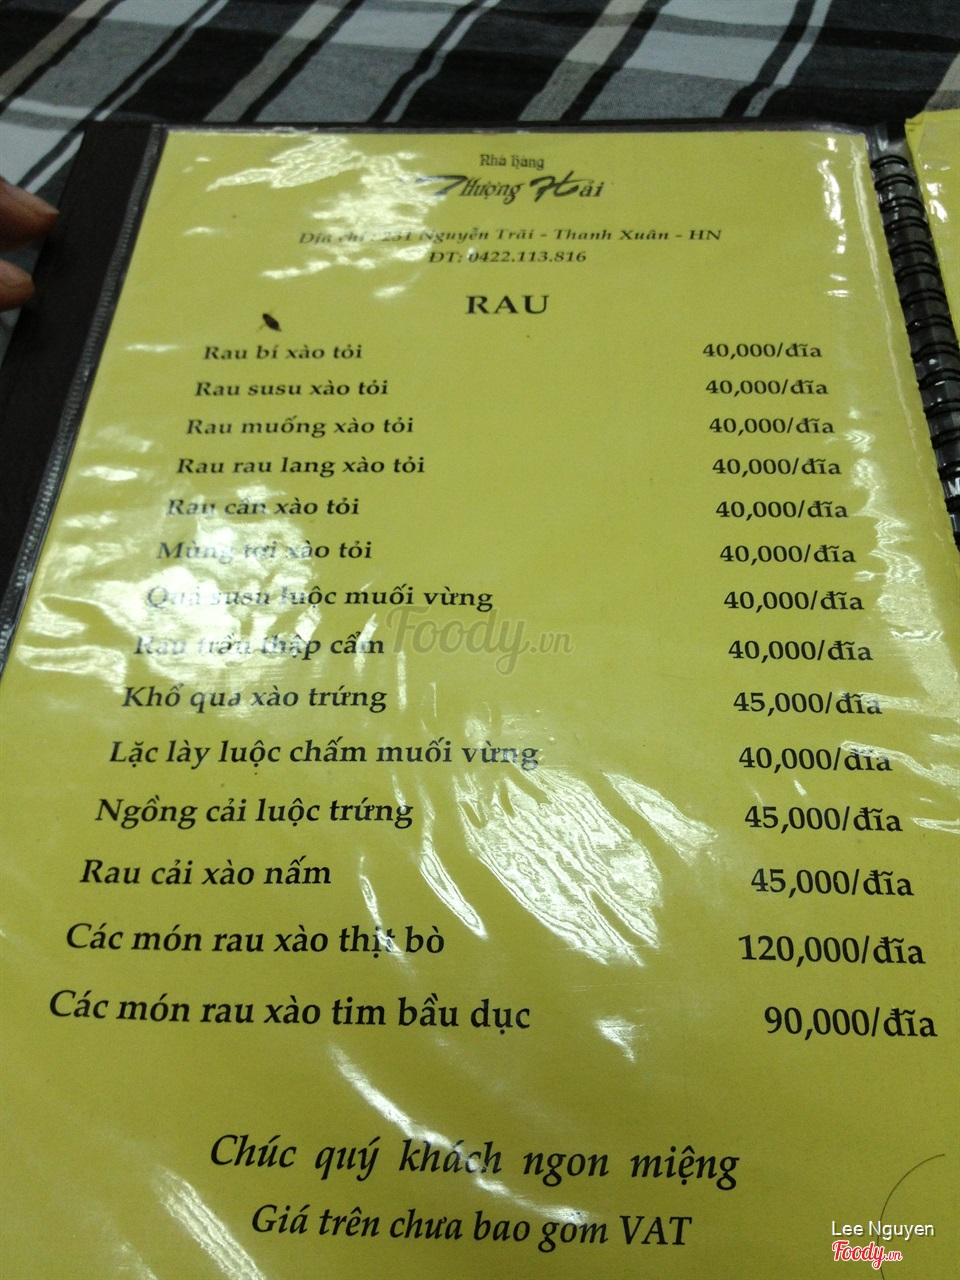 Nhà hàng
Thượng Hải
Địa chỉ : 231 Nguyễn Trãi - Thanh Xuân - HN
ĐT: 0422.113.816
RAU
Rau bí xào tỏi 40,000/đĩa
Rau susu xào tỏi 40,000/đĩa
Rau muống xào tỏi 40,000/đĩa
Rau rau lang xào tỏi 40,000/đĩa
Rau cần xào tỏi 40,000/đĩa
Mùng tơi xào tỏi 40,000/đĩa
Quả susu luộc muối vừng 40,000/đĩa
Rau trần thập cẩm 40,000/đĩa
Khổ qua xào trứng 45,000/đĩa
Lặc lày luộc chấm muối vừng 40,000/đĩa
Ngồng cải luộc trứng 45,000/đĩa
Rau cải xào nấm 45,000/đĩa
Các món rau xào thịt bò 120,000/đĩa
Các món rau xào tim bầu dục 90,000/đĩa
Chúc quý khách ngon miệng
Giá trên chưa bao gồm VAT
Foody.vn
Lee Nguyen
Foody.vn